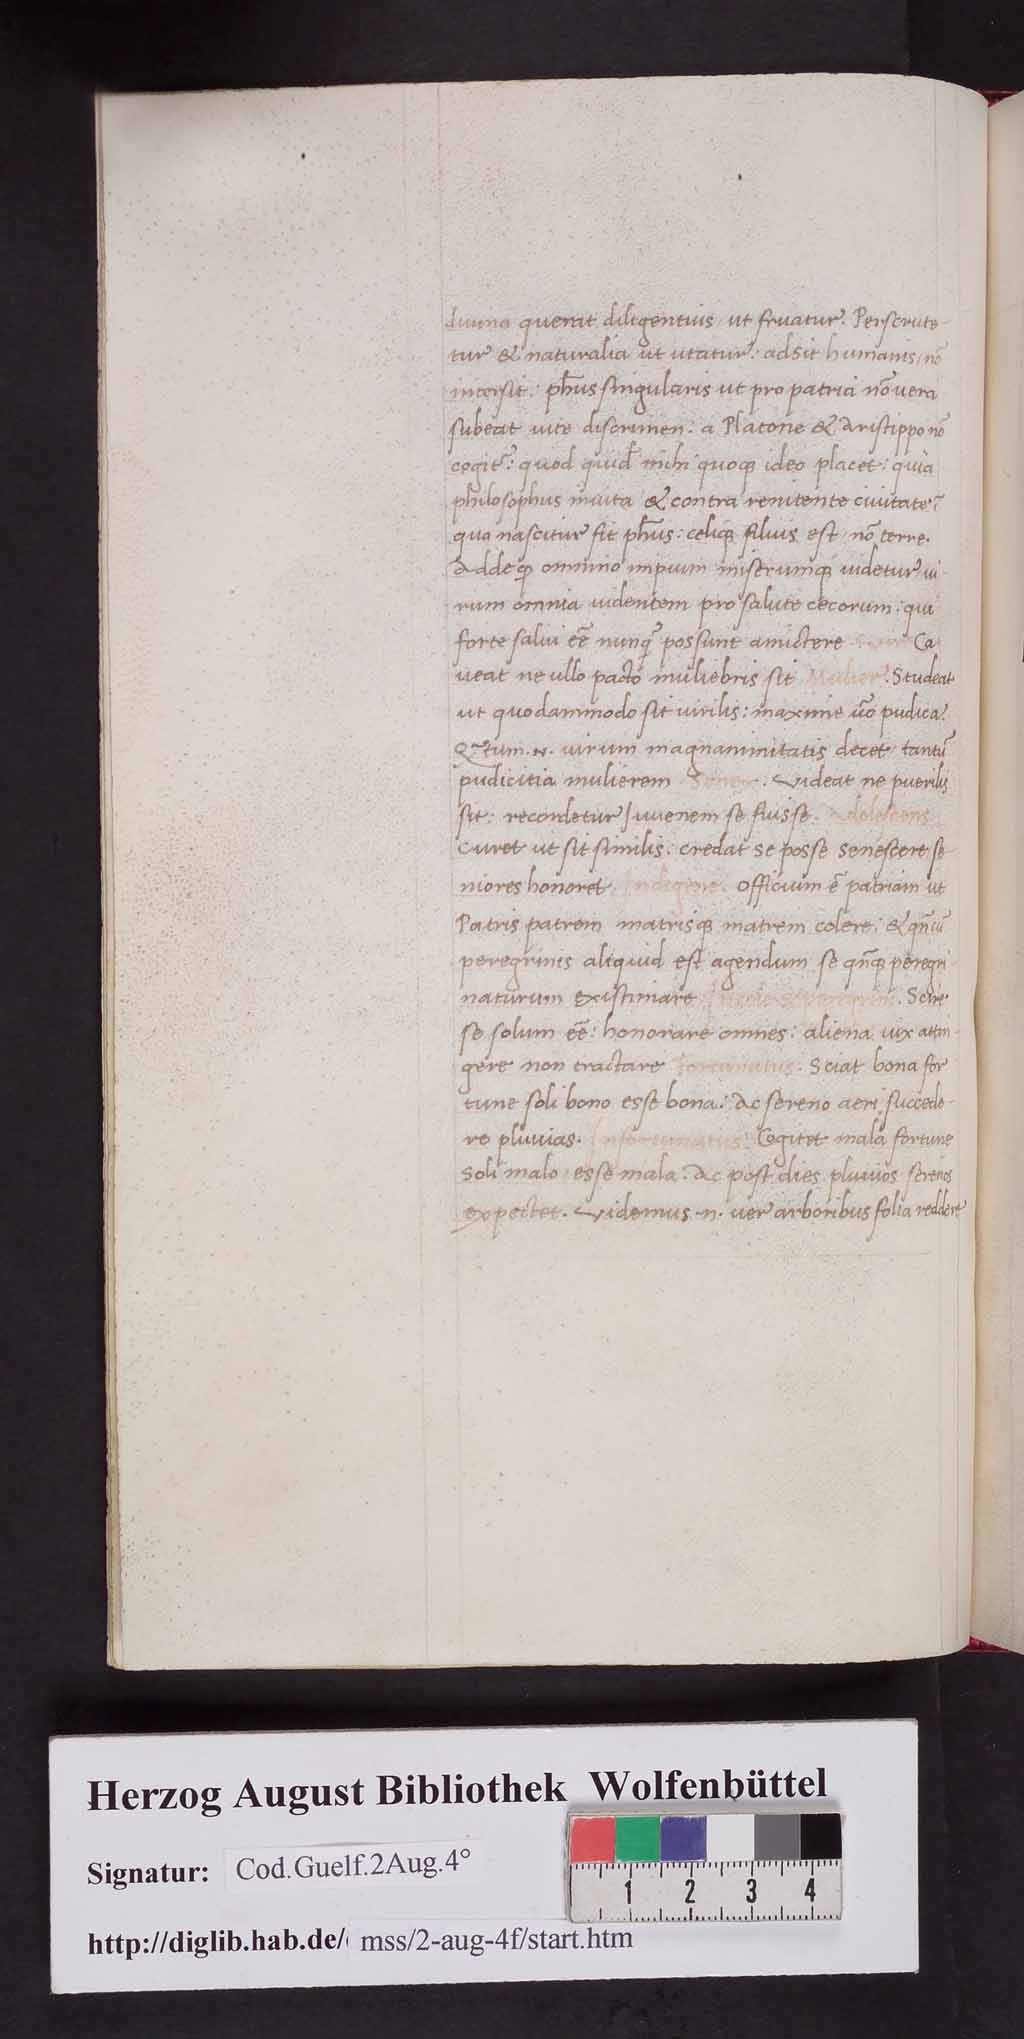 diuina querat diligentius ut fruatur. Perscrute-
tur & naturalia ut utatur: adsit humanis, nō
intersit: ph̄us singularis ut pro patria nō uera
subeat uite discrimen: a Platone & Aristippo nō
cogit᷑: quod quid̄ mihi quoq; ideo placet: quia
philosophus inuita & contra renitente ciuitate ī
qua nascitur fit ph̄us: celiq; filius est nō terre.
Addeq; omnino impium miserumq; uidetur, ui-
rum omnia uidentem pro salute cecorum: qui
forte salui eē nunq̄ possunt amictere Vir Ca
ueat ne ullo pacto muliebris sit Mulier. Studeat
ut quodammodo sit uirilis: maxime ū̄o pudica.
Q̄tum .N. uirum magnanimitatis decet tantū
pudicitia mulierem Senex. Videat ne puerilis
sit: recordetur iuuenem se fuisse. Adolescens
Curet ut sit similis: credat se posse senescere, se
niores honoret Indigene. Officium ē patriam ut
Patris patrem matrisq; matrem colere: & qn̄ cū
peregrinis aliquid est agendum se qn̄q; peregri
naturum existimare peregrini. Scire
se solum eē: honorare omnes: aliena uix attin-
gere non tractare Fortunatus. Sciat bona for
tune soli bono esse bona. Ac sereno aeri succede-
re pluuias. Infortunatus. Cogitet mala fortune
soli malo esse mala. Ac post dies pluuios serenos
expectet. Videmus .n. uer arboribus folia reddere
Herzog August Bibliothek Wolfenbüttel
Signatur: Cod.Guelf.2Aug.4°
http://diglib.hab.de/ mss/2-aug-4f/start.htm
1 2 3 4